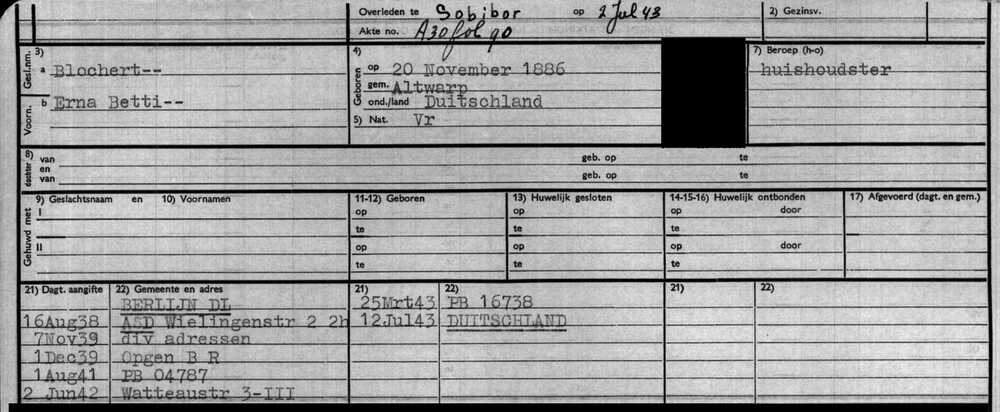 Overleden te Sobibor op 2 Jul 43 2) Gezinsv.
Akte no. A30 fol 90
3) 4) 7) Beroep (h-o)
Gesl.nm. a Blochert-- Geboren op 20 November 1886 huishoudster
gem. Altwarp
Voorn. b Erna Betti-- ond./land Duitschland
5) Nat. Vr
dochter 8) van geb. op te
en
van geb. op te
Gehuwd met 9) Geslachtsnaam en 10) Voornamen 11-12) Geboren 13) Huwelijk gesloten 14-15-16) Huwelijk ontbonden 17) Afgevoerd (dagt. en gem.)
I op op op door
te te te
II op op op door
te te te
21) Dagt. aangifte 22) Gemeente en adres 21) 22) 21) 22)
BERLIJN DL 25Mrt43 PB 16738
16Aug38 ASD Wielingenstr 2 2h 12Jul43 DUITSCHLAND
7Nov39 div adressen
1Dec39 Opgen B R
1Aug41 PB 04787
2 Jun42 Watteaustr 3-III